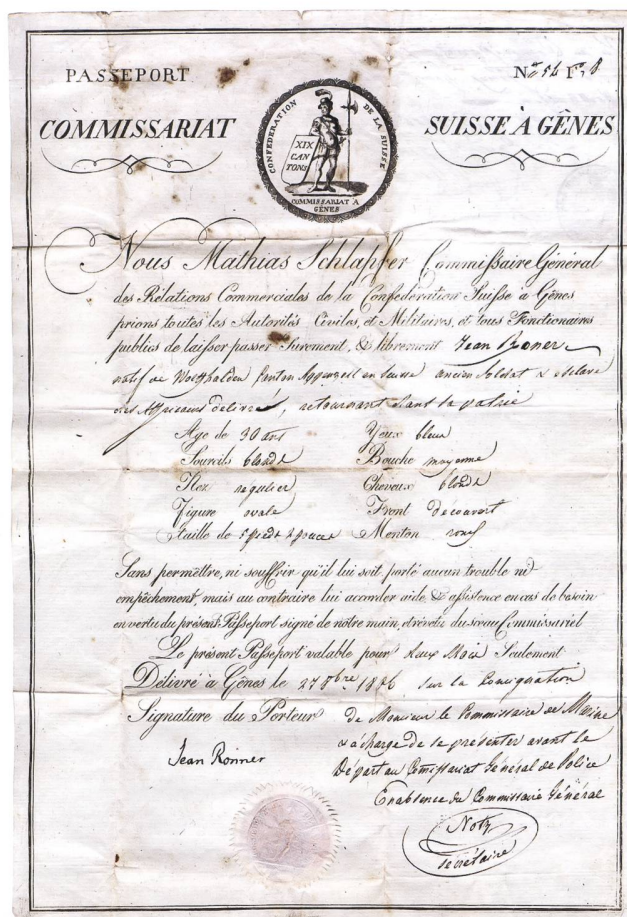 PASSEPORT
COMMISSARIAT
SUISSE À GÊNES
CONFEDERATION DE LA SUISSE
XIX
CAN
TONS
COMMISSARIAT À
GÊNES
Nous Mathias Schlapfer Commissaire Général
des Rélations Commerciales de la Confedération Suisse a Gênes
prions toutes les Autorités Civiles, et Militaires, et tous Fonctionaires
publics de laisser passer Surement, & librement Jean Roner
natif de Canton en Suisse ancien Soldat & esclave
des délivré, retournant dans sa patrie
Age de 30 ans Yeux bleux
Sourcils blonde Bouche moyenne
Nez regulier Cheveux blonde
Figure ovale Front decouvert
Taille de 5 Menton rond
Sans permettre, ni souffrir qu'il lui soit porté aucun trouble ni
empêchement, mais au contraire lui accorder aide, & assistence en cas de besoin
en vertu du présent Passeport signé de notre main, et révêtu du sceau Commissariel
Le présent Passeport valable pour deux Mois Seulement
Délivré à Gênes le 27 8bre 1816 sur la Consignation
Signature du Porteur
de Monsieur le Commissaire de Marine
& à charge de se présenter avant le
Départ au Comissariat Général de Police
Jean Ronner
En absence du Commissaire Général
Notz
secrétaire